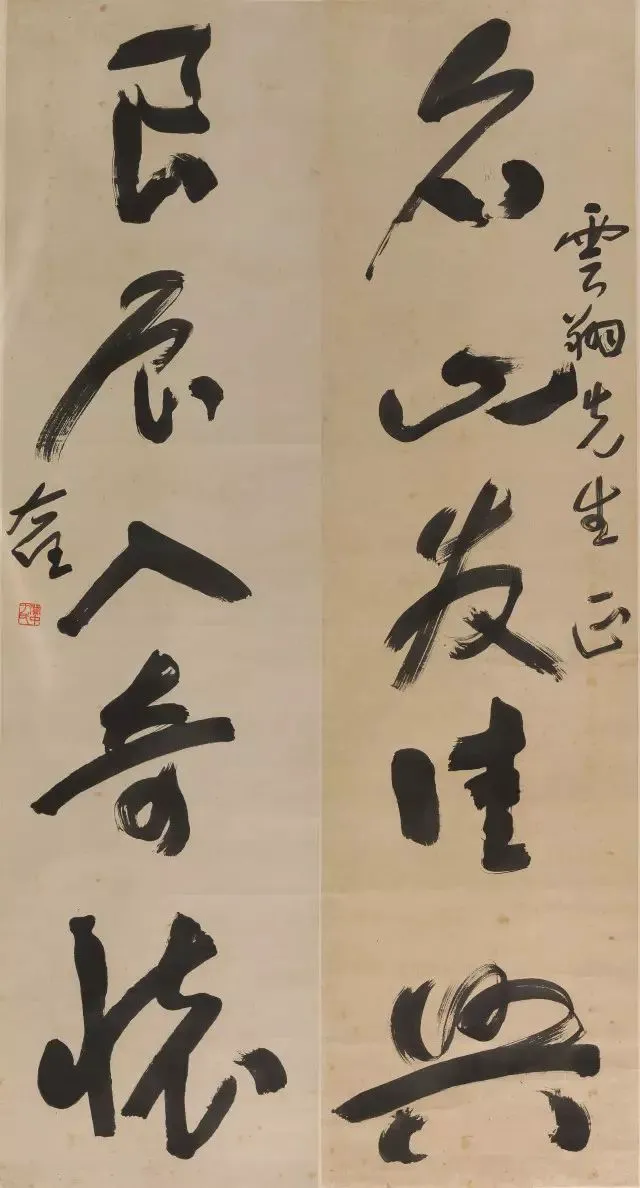 雲翔先生正
名山發佳興
良辰入奇懷
右任